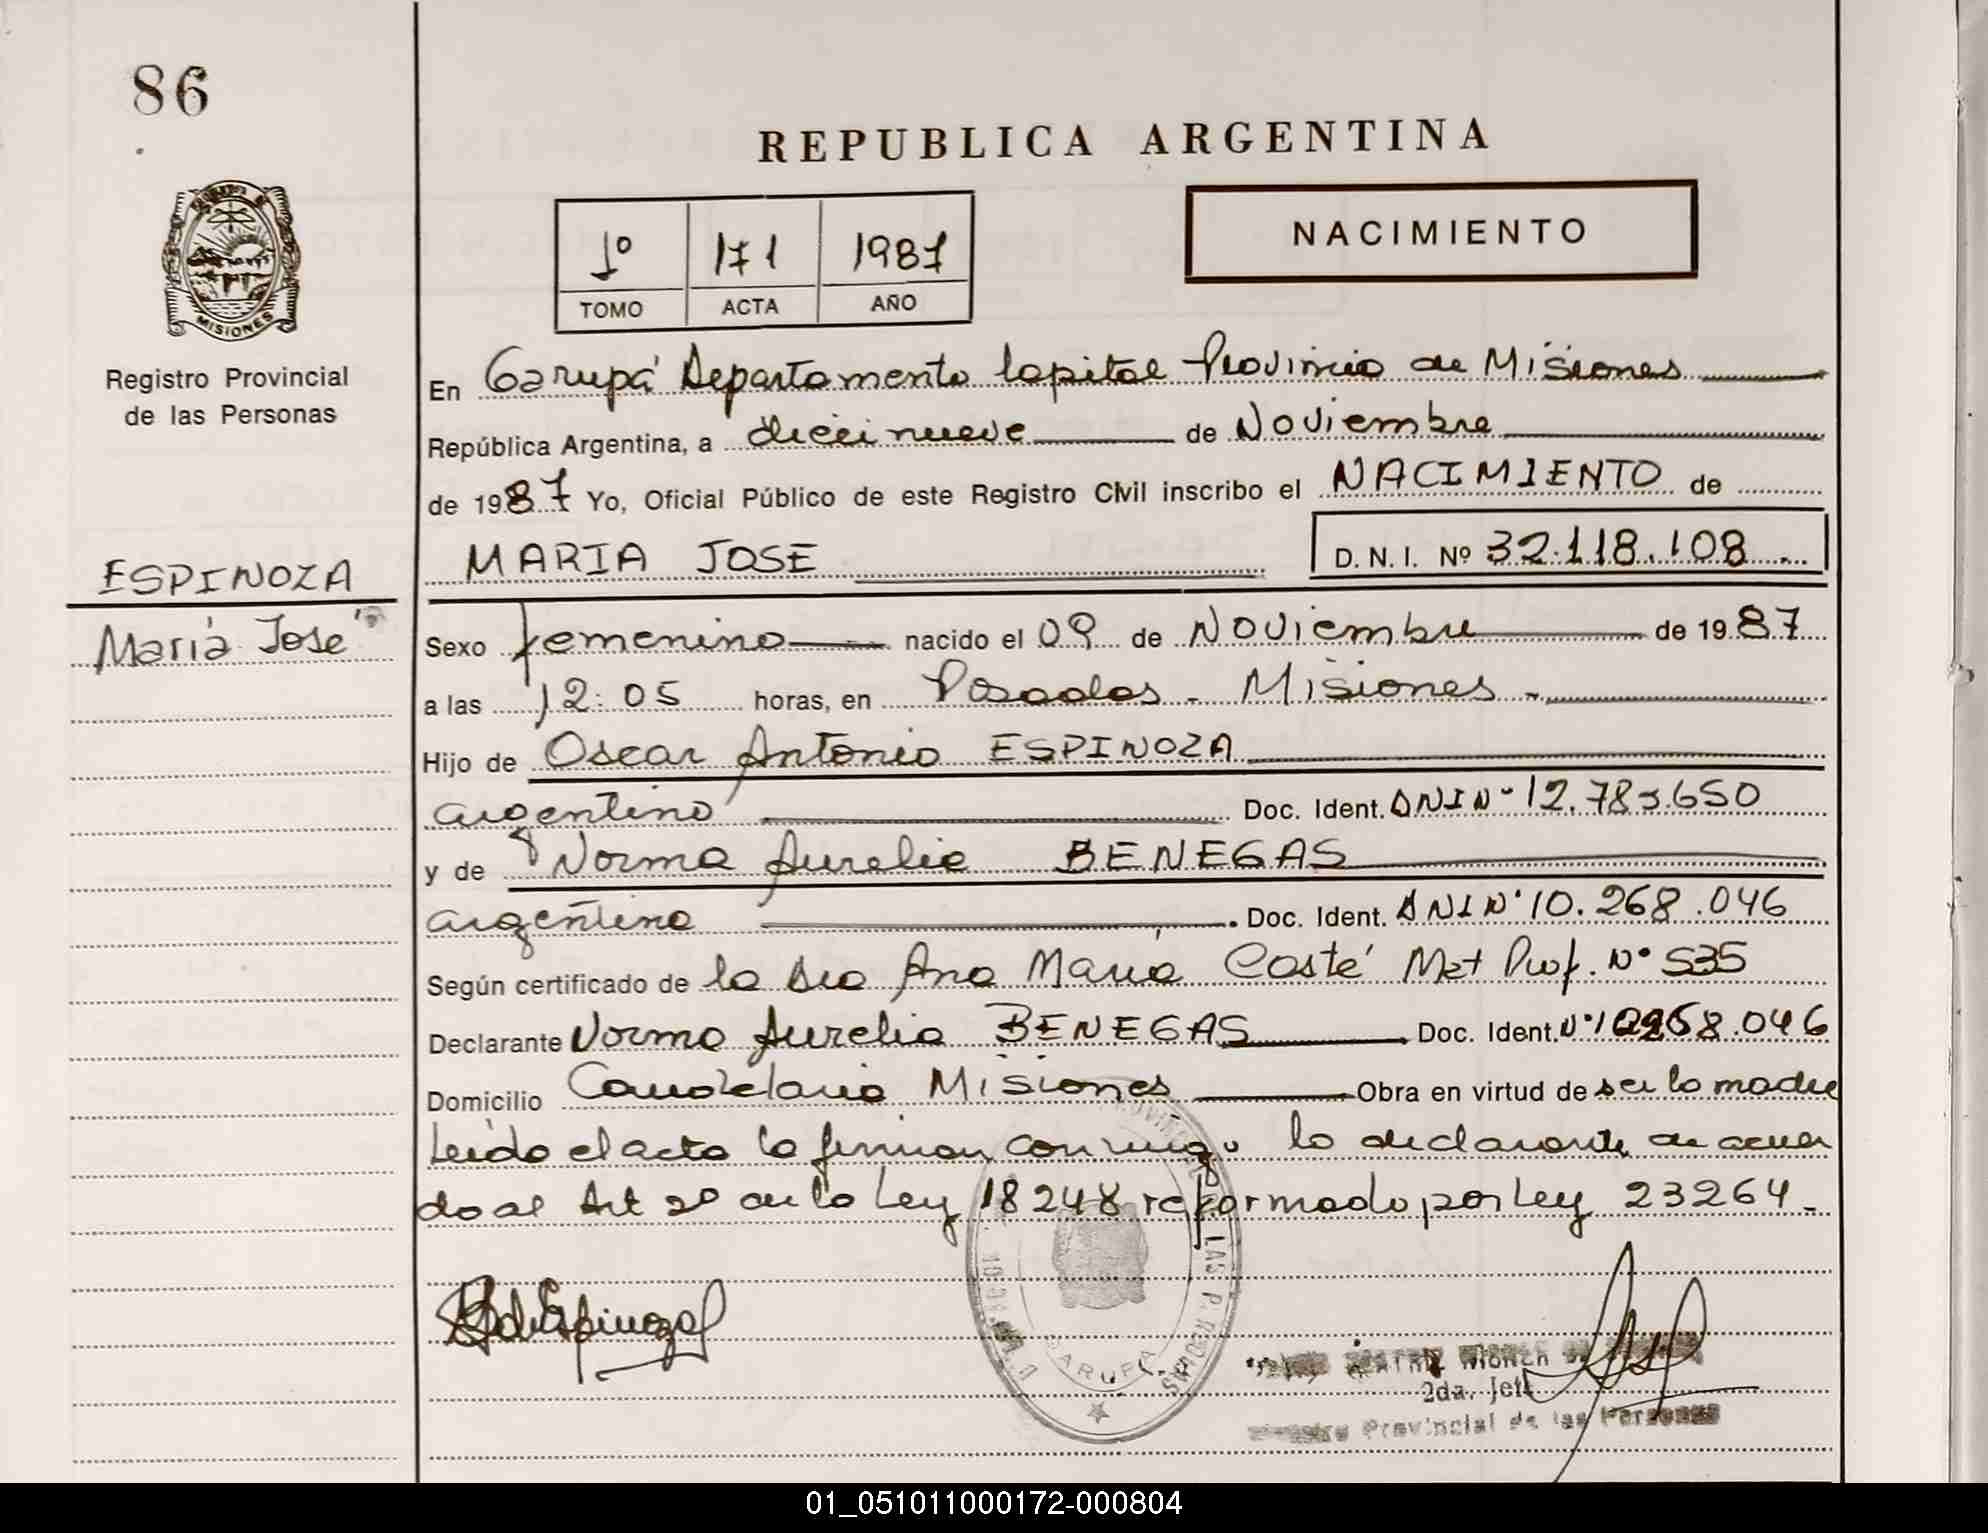 86
REPUBLICA ARGENTINA
NACIMIENTO
1º 171 1987
TOMO ACTA AÑO
MISIONES
Registro Provincial
de las Personas
En Garupá Departamento Capital Provincia de Misiones
República Argentina, a diecinueve de Noviembre
de 1987 Yo, Oficial Público de este Registro Civil inscribo el NACIMIENTO de
ESPINOZA
MARIA JOSE D.N.I. Nº 32.118.108
María José
Sexo femenino nacido el 09 de Noviembre de 1987
a las 12:05 horas, en Posadas - Misiones -
Hijo de Oscar Antonio ESPINOZA
argentino Doc. Ident. DNI Nº 12.783.650
y de Norma Aurelia BENEGAS
argentina Doc. Ident. DNI Nº 10.268.046
Según certificado de la Dra Ana María Costé Mat Prof. Nº 535
Declarante Norma Aurelia BENEGAS Doc. Ident. Nº 10268.046
Domicilio Candelaria Misiones Obra en virtud de ser la madre
Leído el acta la firman conmigo la declarante de acuer
do al Art 2º de la Ley 18248 reformado por Ley 23264.
LAS P.
GARUPA
de Espinoza
2da. Jef
Provincial de las Personas
01_051011000172-000804